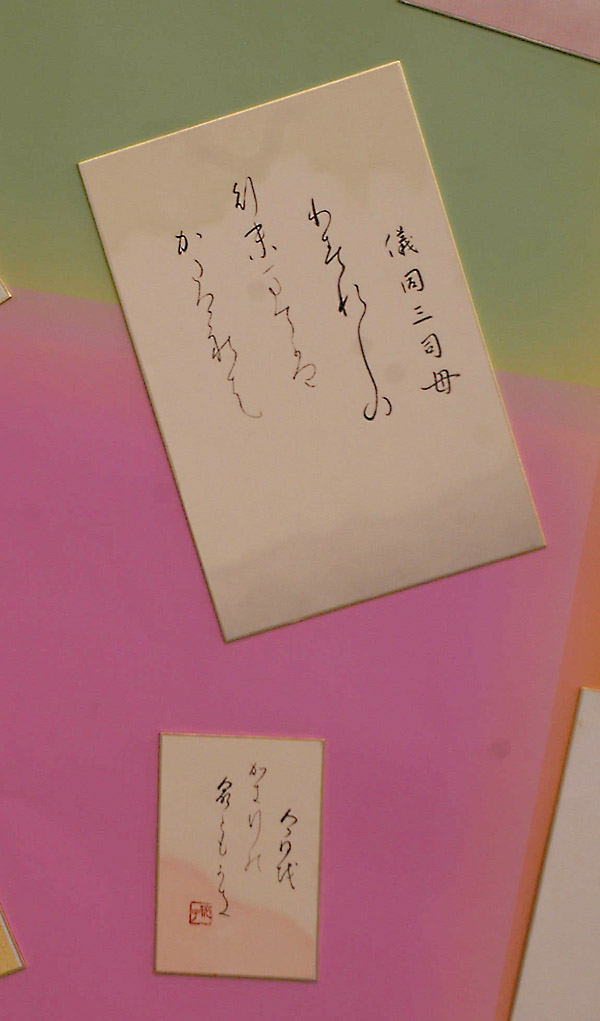 儀同三司母
わすれしの
行末まては
かたけれは
今日を
かきりの
命ともかな